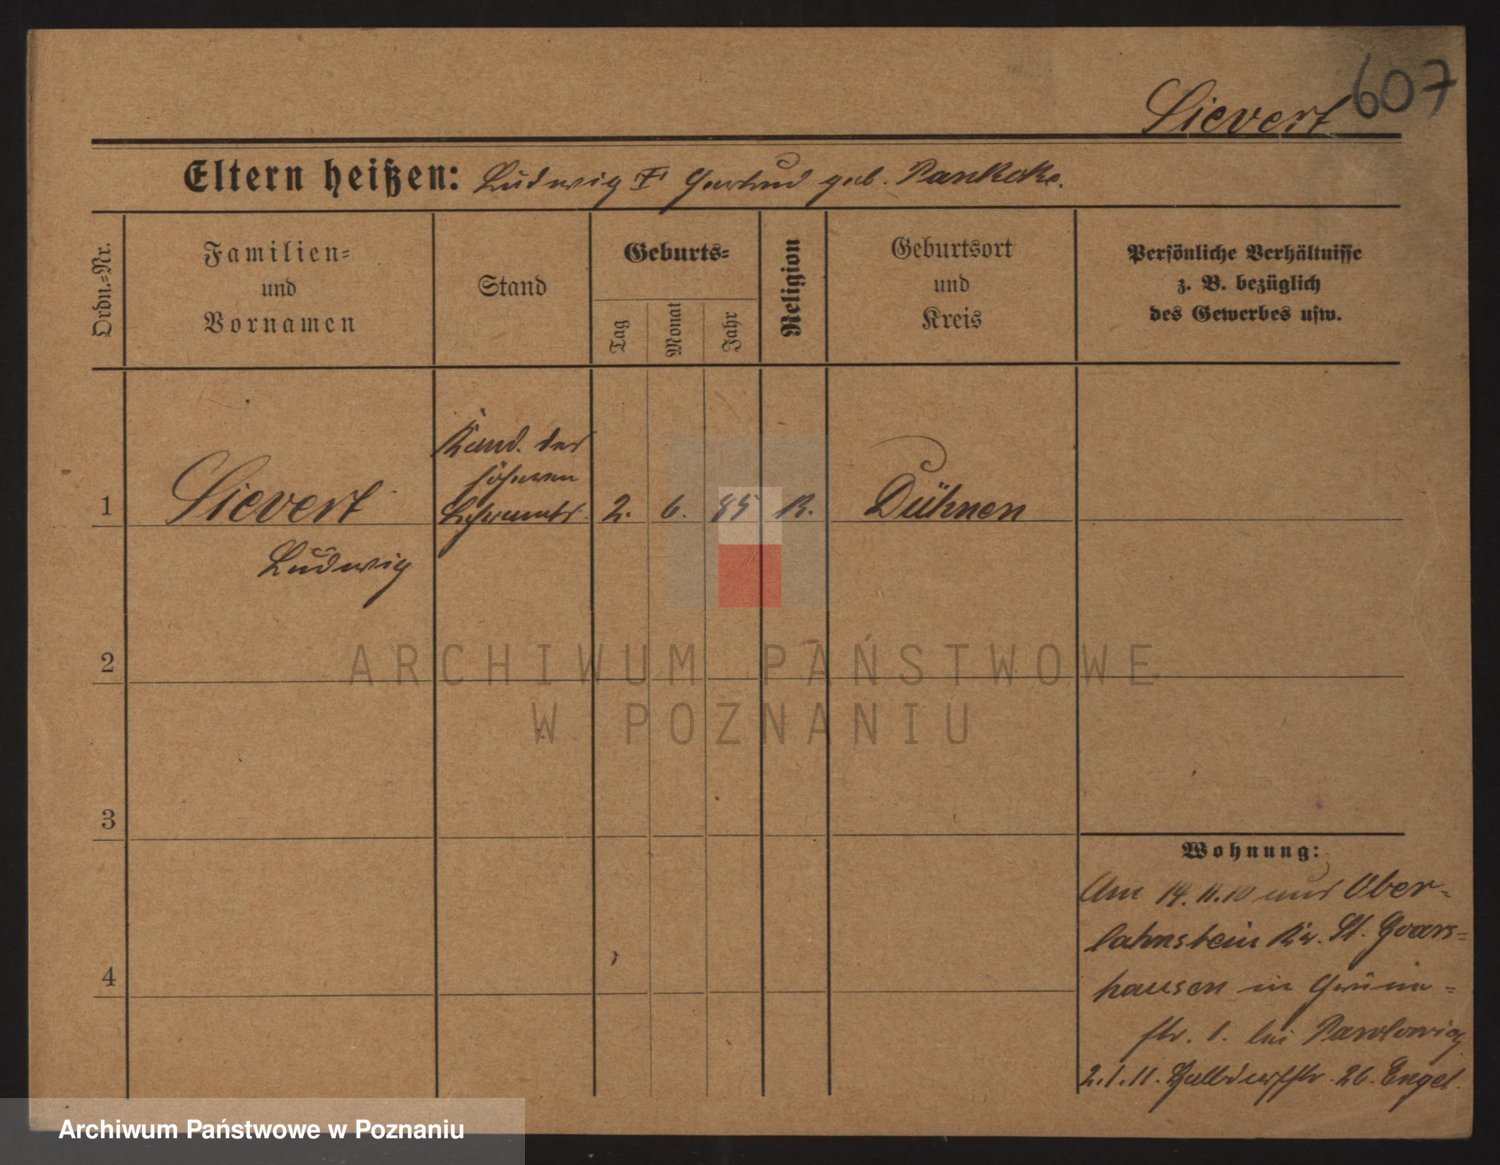 607
Sievert
Eltern heißen: Ludwig & Gertrud geb. Pankoke.
Ordn.=Nr.
Familien=
und
Vornamen
Stand
Geburts=
Tag
Monat
Jahr
Religion
Geburtsort
und
Kreis
Persönliche Verhältnisse
z. B. bezüglich
des Gewerbes usw.
Kand. des
höheren
1 Sievert Lehramts. 2. 6. 85 K. Dühnen
Ludwig
2
ARCHIWUM PAŃSTWOWE
W POZNANIU
3
4
Wohnung:
Am 14.11.10 aus Ober=
lahnstein Kr. St. Goars=
hausen in Grün=
str. 1. bei Pawlowicz
2.1.11. Halbdorfstr. 26. Engel.
Archiwum Państwowe w Poznaniu